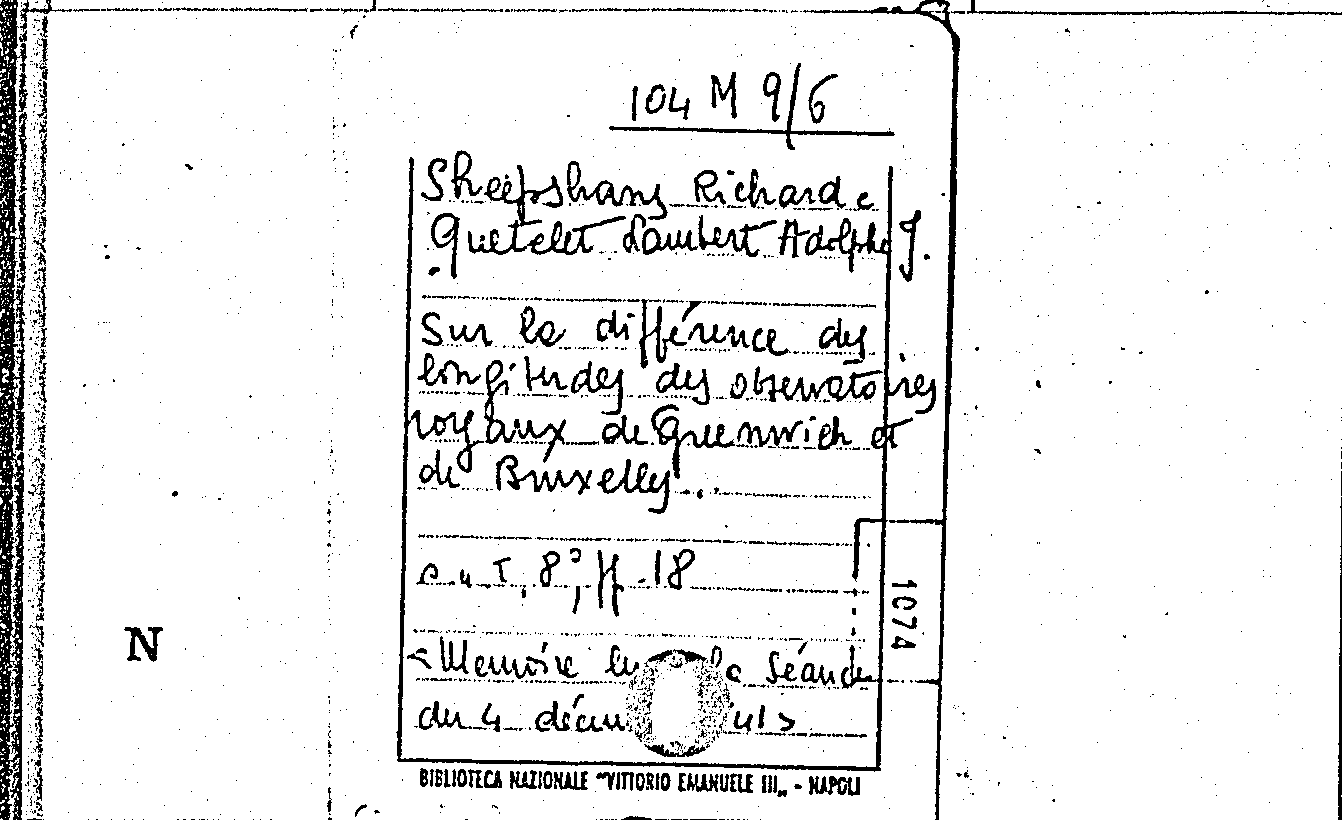 104 M 9/6
Sheepshans Richard e
Quetelet Lambert Adolphe J.
Sur la différence des
longitudes des observatoires
royaux de Greenwich et
de Bruxelles...
8°, ff. 18
1074
N
<Memoire la Séance
du 4
BIBLIOTECA NAZIONALE "VITTORIO EMANUELE III„ - NAPOLI